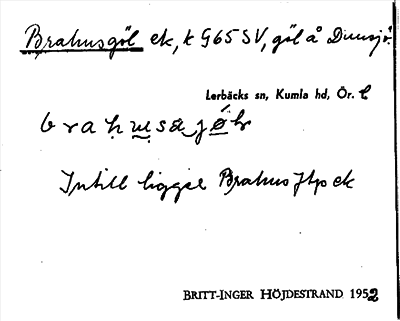 Brahusgöl ek, k G65 SV, göl å Dunsjö.
Lerbäcks sn, Kumla hd, Ör. l
Intill ligger Brahus ftp ek
BRITT-INGER HÖJDESTRAND 1952